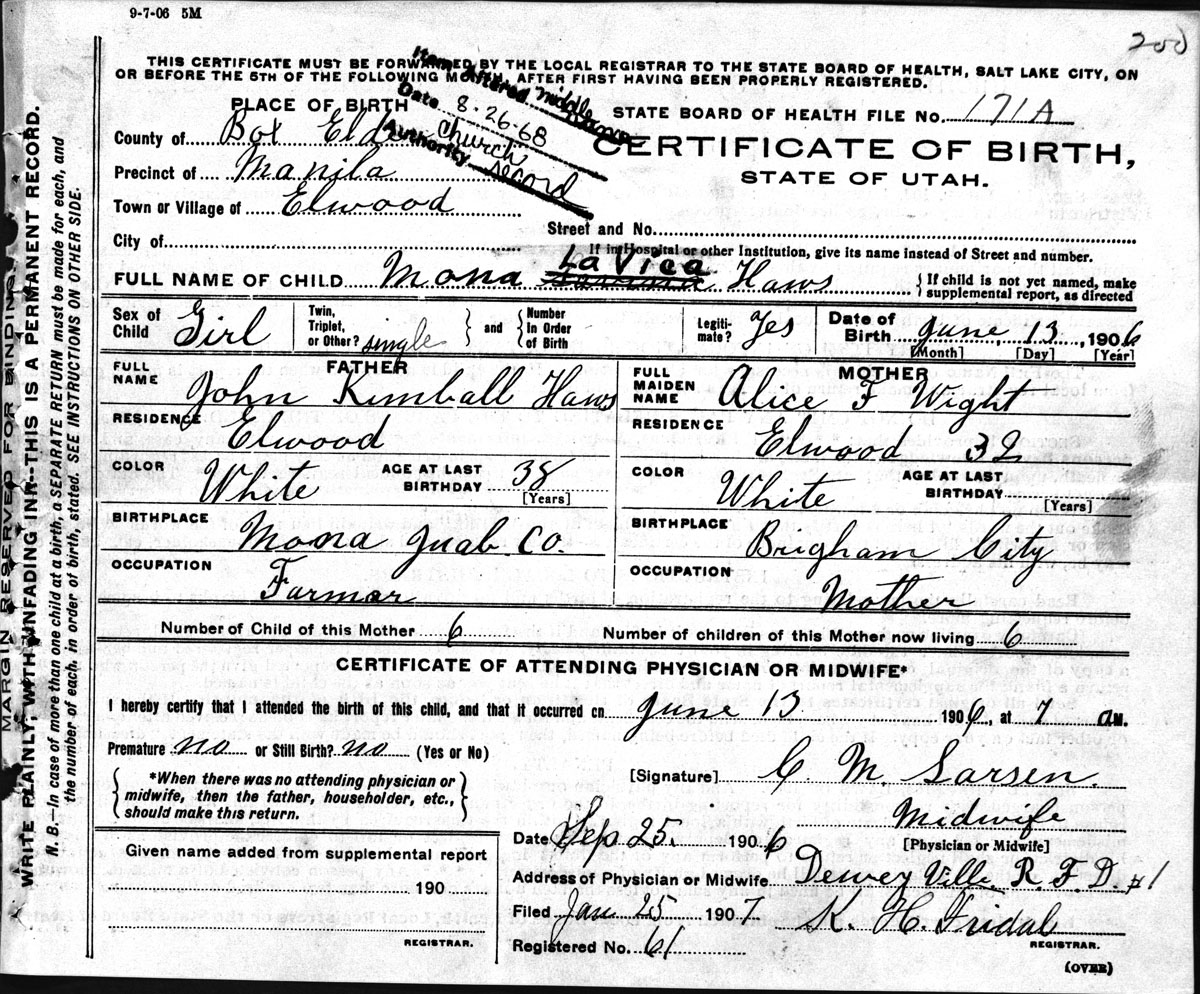 9-7-06 5M
200
THIS CERTIFICATE MUST BE FORWARDED BY THE LOCAL REGISTRAR TO THE STATE BOARD OF HEALTH, SALT LAKE CITY, ON
OR BEFORE THE 5TH OF THE FOLLOWING MONTH, AFTER FIRST HAVING BEEN PROPERLY REGISTERED.
Item Altered Middle Name
Date 8-26-68
Authority Church record
PLACE OF BIRTH
STATE BOARD OF HEALTH FILE No. 171A
County of Box Elder
CERTIFICATE OF BIRTH,
Precinct of Manila
STATE OF UTAH.
Town or Village of Elwood
Street and No.
City of
If in Hospital or other Institution, give its name instead of Street and number.
FULL NAME OF CHILD Mona La Vica Haws
If child is not yet named, make
supplemental report, as directed
Sex of Child Girl
Twin, Triplet, or Other? single
and
Number In Order of Birth
Legiti-mate? Yes
Date of Birth June 13, 1906
[Month] [Day] [Year]
FATHER
FULL NAME John Kimball Haws
RESIDENCE Elwood
COLOR White
AGE AT LAST BIRTHDAY 38
[Years]
BIRTHPLACE Mona Juab. Co.
OCCUPATION Farmar
MOTHER
FULL MAIDEN NAME Alice F Wight
RESIDENCE Elwood 32
COLOR White
AGE AT LAST BIRTHDAY
[Years]
BIRTHPLACE Brigham City
OCCUPATION Mother
Number of Child of this Mother 6
Number of children of this Mother now living 6
CERTIFICATE OF ATTENDING PHYSICIAN OR MIDWIFE*
I hereby certify that I attended the birth of this child, and that it occurred on June 13 1906, at 7 a M.
Premature no or Still Birth? no (Yes or No)
*When there was no attending physician or
midwife, then the father, householder, etc.,
should make this return.
[Signature] C. M. Larsen.
Midwife
[Physician or Midwife]
Date Sep 25. 1906
Given name added from supplemental report
190
REGISTRAR.
Address of Physician or Midwife Dewey Ville. R. F. D. #1
Filed Jan 25 1907
K. H. Fridal
REGISTRAR.
Registered No. 61
(OVER)
MARGIN RESERVED FOR BINDING.
WRITE PLAINLY, WITH UNFADING INK--THIS IS A PERMANENT RECORD.
N. B.—In case of more than one child at a birth, a SEPARATE RETURN must be made for each, and
the number of each, in order of birth, stated. SEE INSTRUCTIONS ON OTHER SIDE.